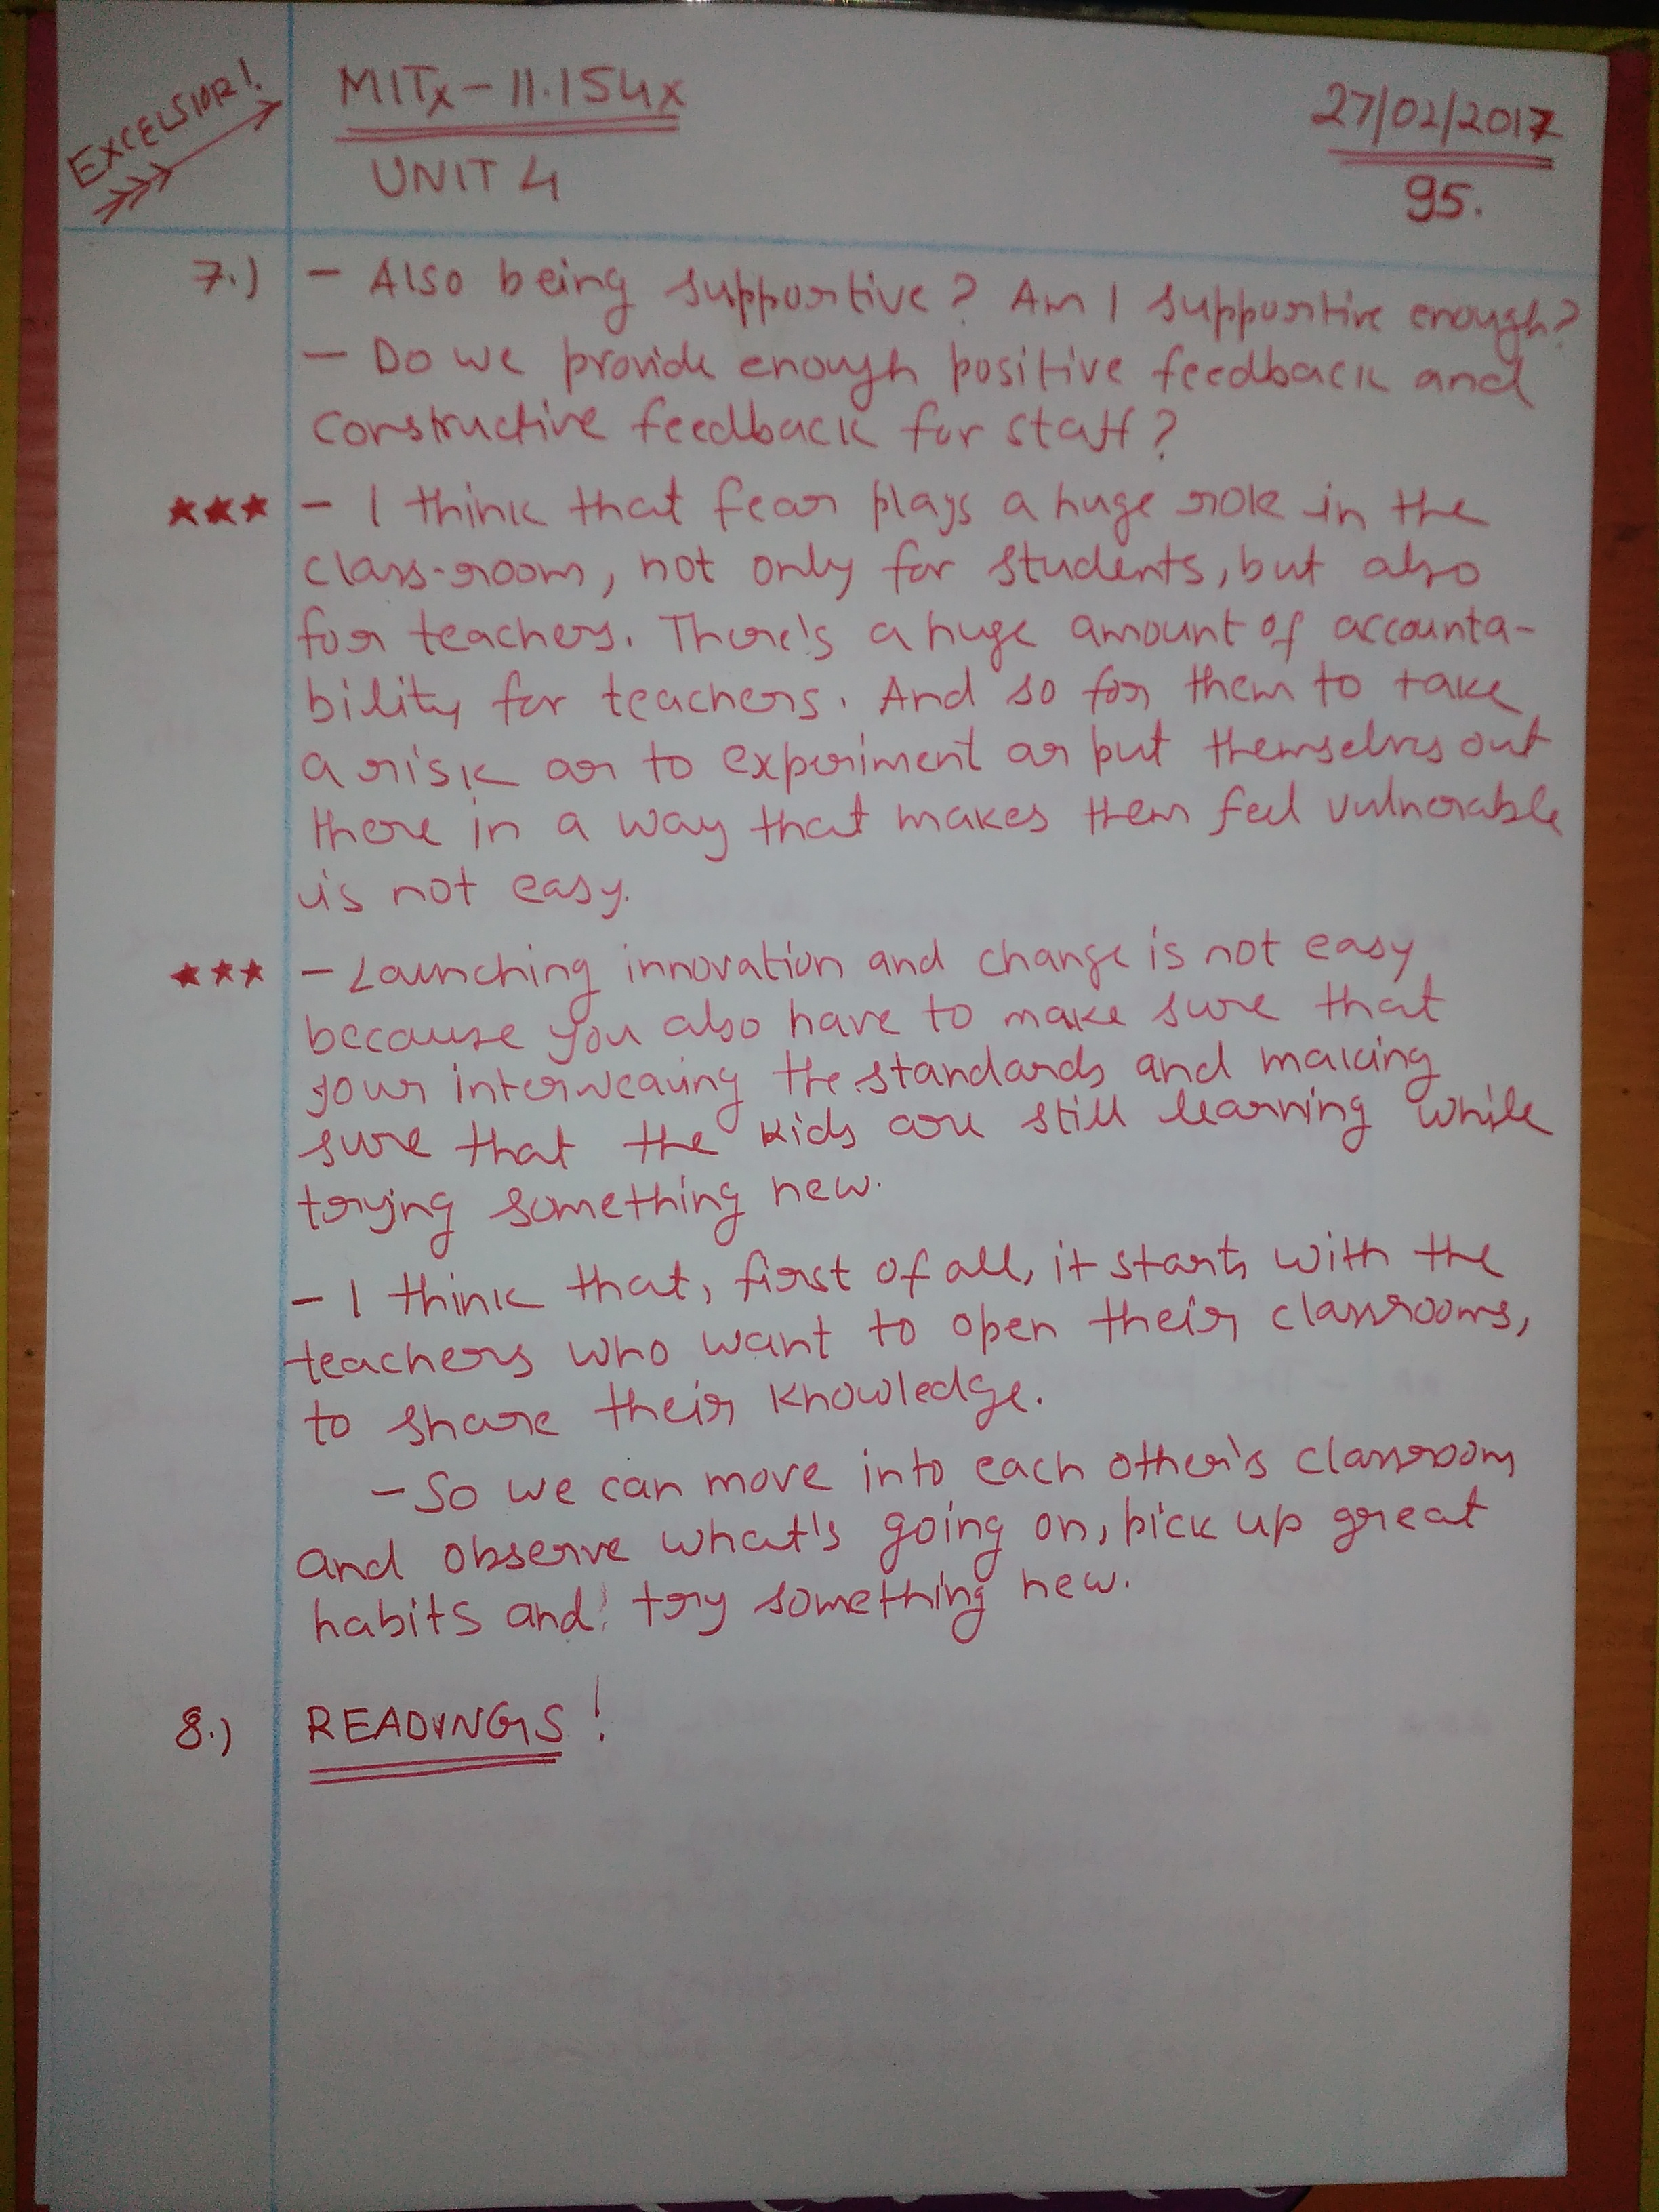 EXCELSIOR!
MITx - 11.154x
UNIT 4
27/02/2017
95.
7.) - Also being supportive? Am I supportive enough?
- Do we provide enough positive feedback and
constructive feedback for staff?
★★★ - I think that fear plays a huge role in the
class-room, not only for students, but also
for teachers. There's a huge amount of accounta-
bility for teachers. And so for them to take
a risk or to experiment or put themselves out
there in a way that makes them feel vulnerable
is not easy.
★★★ - Launching innovation and change is not easy
because you also have to make sure that
your interweaving the standards and making
sure that the kids are still learning while
trying something new.
- I think that, first of all, it starts with the
teachers who want to open their classrooms,
to share their knowledge.
- So we can move into each other's classroom
and observe what's going on, pick up great
habits and try something new.
8.) READINGS!